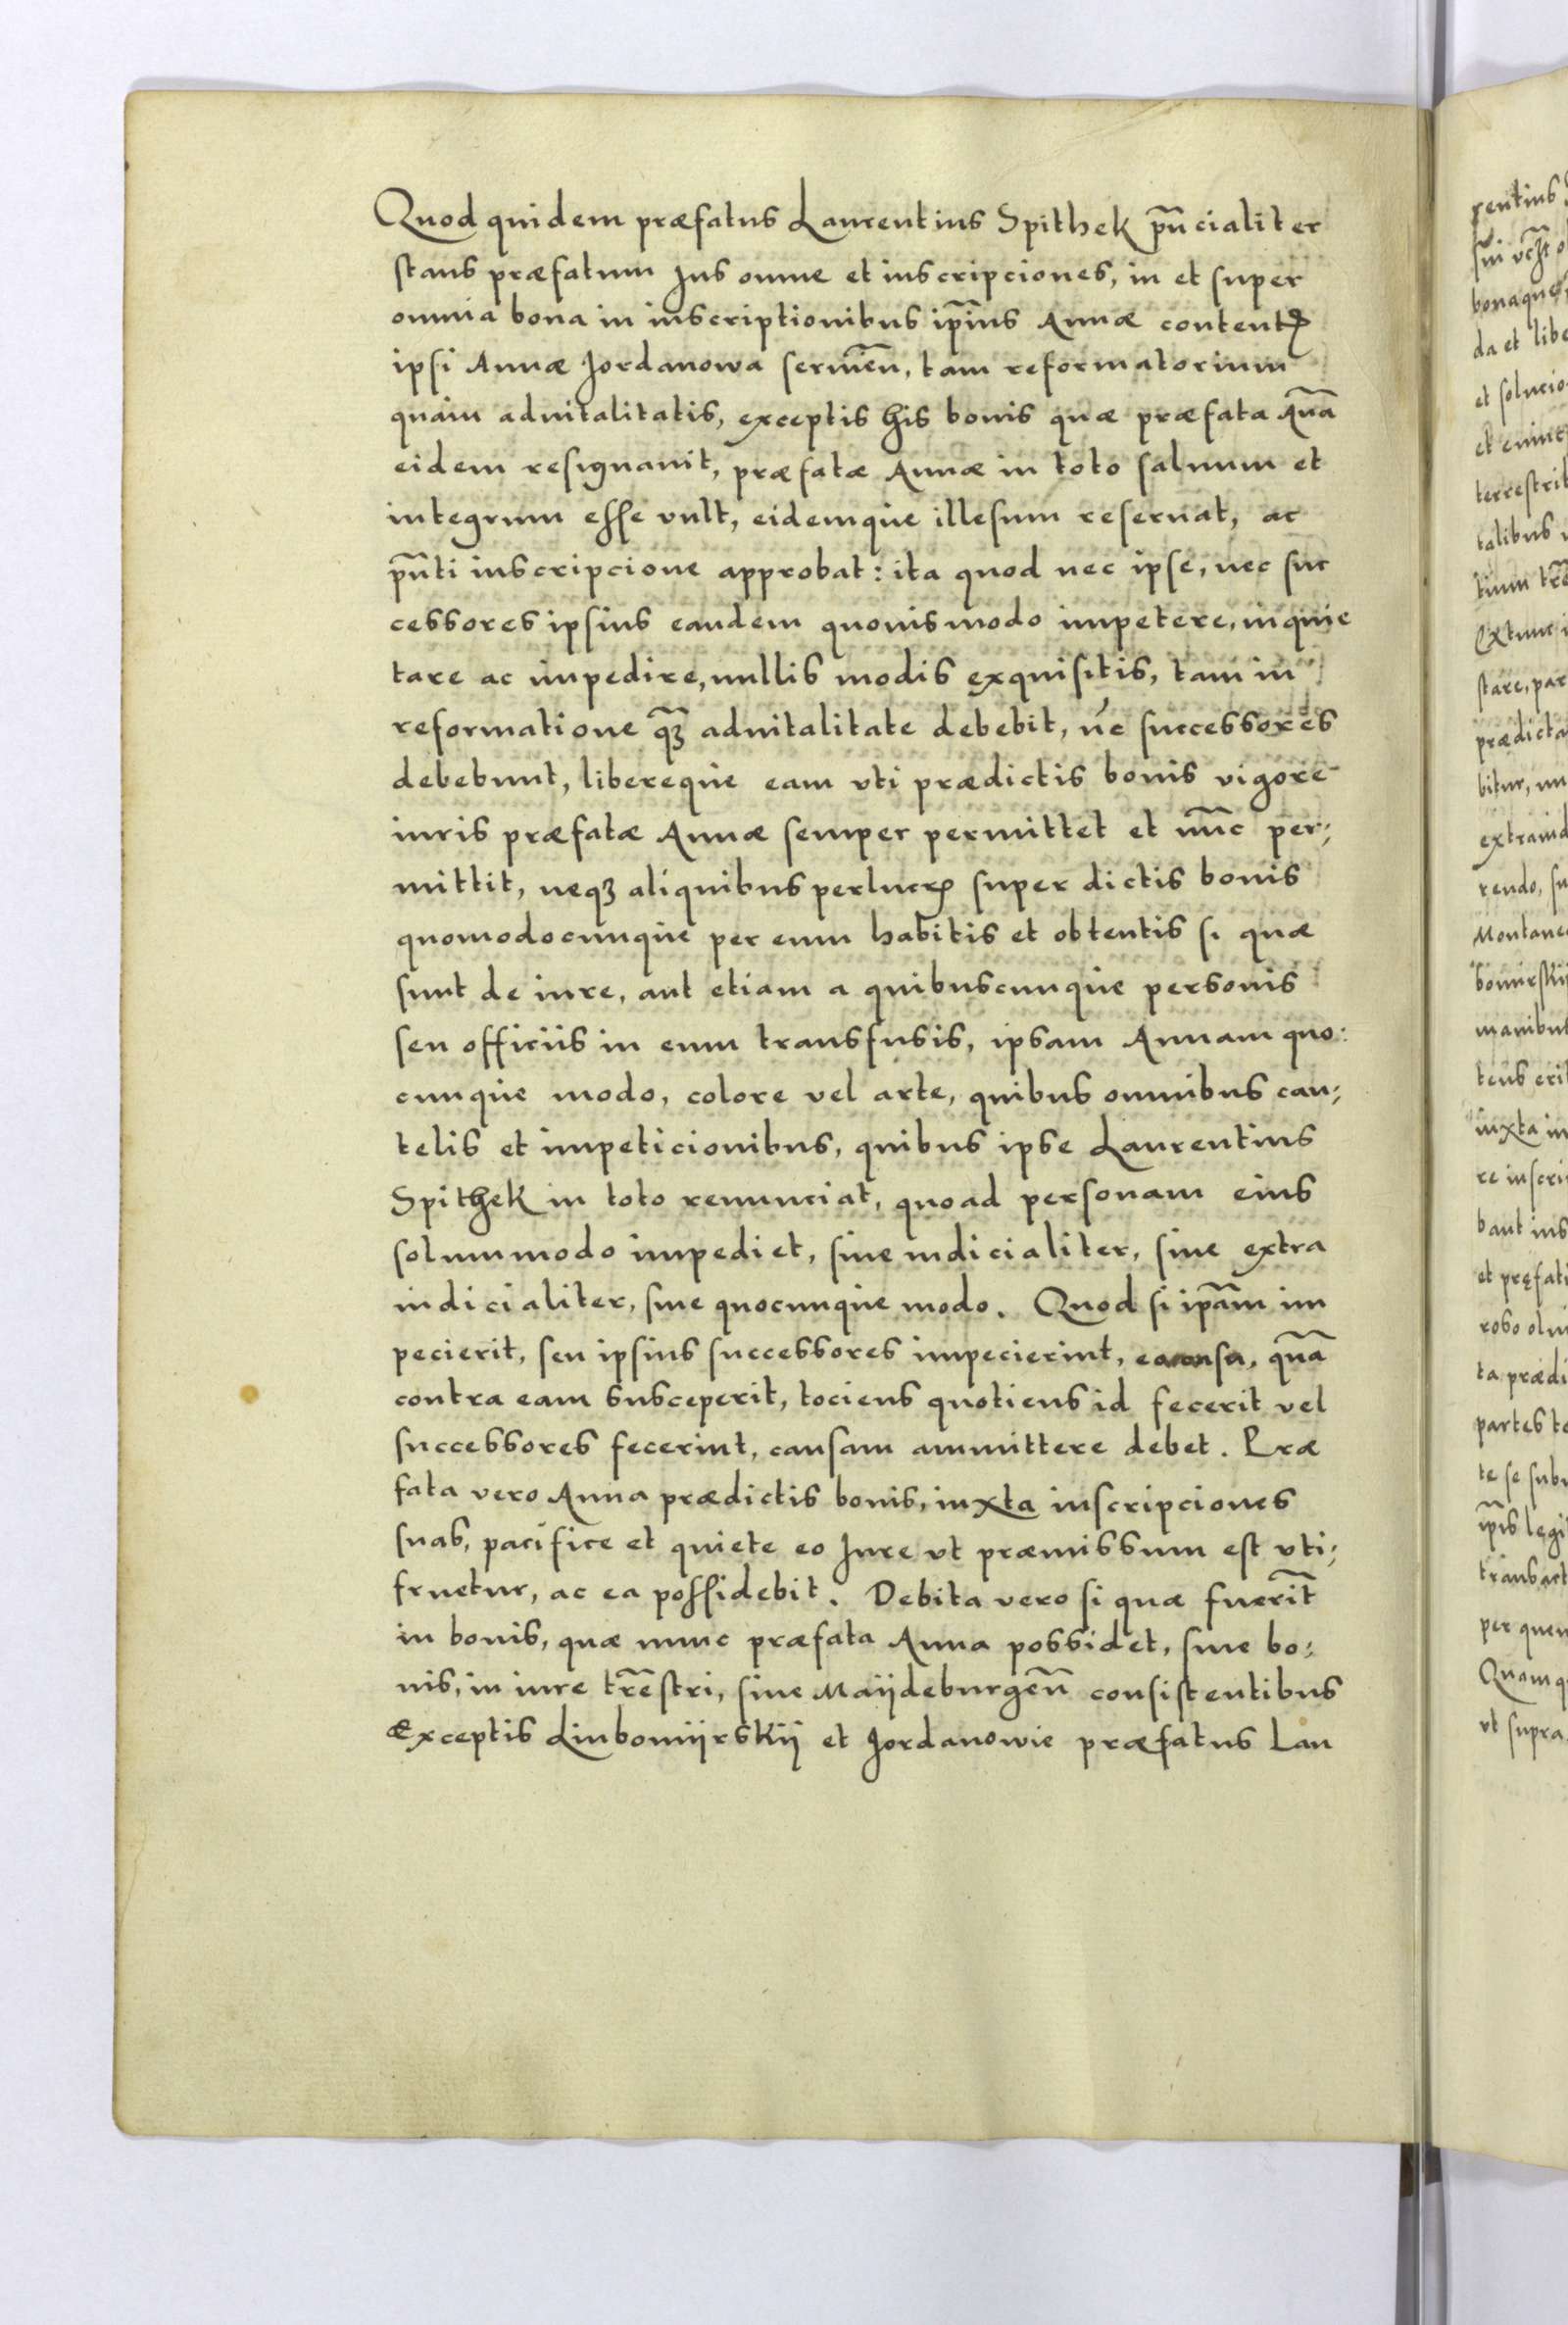 Quod quidem præfatus Laurentius Spithek p̃ncialiter
stans præfatum Jus omne et inscripciones, in et super
omnia bona in inscriptionibus ip̃ius Annæ contentꝭ
ipsi Annæ Jordanowa seruieñ, tam reformatorium
quam aduitalitatis, exceptis his bonis quæ præfata Añna
eidem resignauit, præfatæ Annæ in toto saluum et
integrum esse vult, eidemque illesum reseruat, ac
p̃nti inscripcione approbat: ita quod nec ipse, nec suc
cessores ipsius eandem quouismodo impetere, inquie
tare ac impedire, nullis modis exquisitis, tam in
reformatione q̃ꝫ aduitalitate debebit, ñc successores
debebunt, libereque eam vti prædictis bonis vigore
iuris præfatæ Annæ semper permittet et nũc per;
mittit, neqꝫ aliquibus perlucrꝭ super dictis bonis
quomodocunque per eum habitis et obtentis si quæ
sunt de iure, aut etiam a quibuscunque personis
seu officiis in eum transfusis, ipsam Annam quo:
cunque modo, colore vel arte, quibus omnibus cau;
telis et impeticionibus, quibus ipse Laurentius
Spithek in toto renunciat, quoad personam eius
solummodo impediet, siue iudicialiter, siue extra
iudicialiter, siue quocunque modo. Quod si ip̃am im
pecierit, seu ipsius successores impecierint, ea causa, quã
contra eam susceperit, tociens quotiens id fecerit vel
successores fecerint, causam ammittere debet. Præ
fata vero Anna prædictis bonis, iuxta inscripciones
suas, pacifice et quiete eo Jure vt præmissum est vti;
fruetur, ac ea possidebit. Debita vero si quæ fuerĩt
in bonis, quæ nunc præfata Anna possidet, siue bo;
nis, in iure tr̃estri, siue Maijdeburgeñ consistentibus
Exceptis Liubomijrskij et Jordanowie præfatus Lau